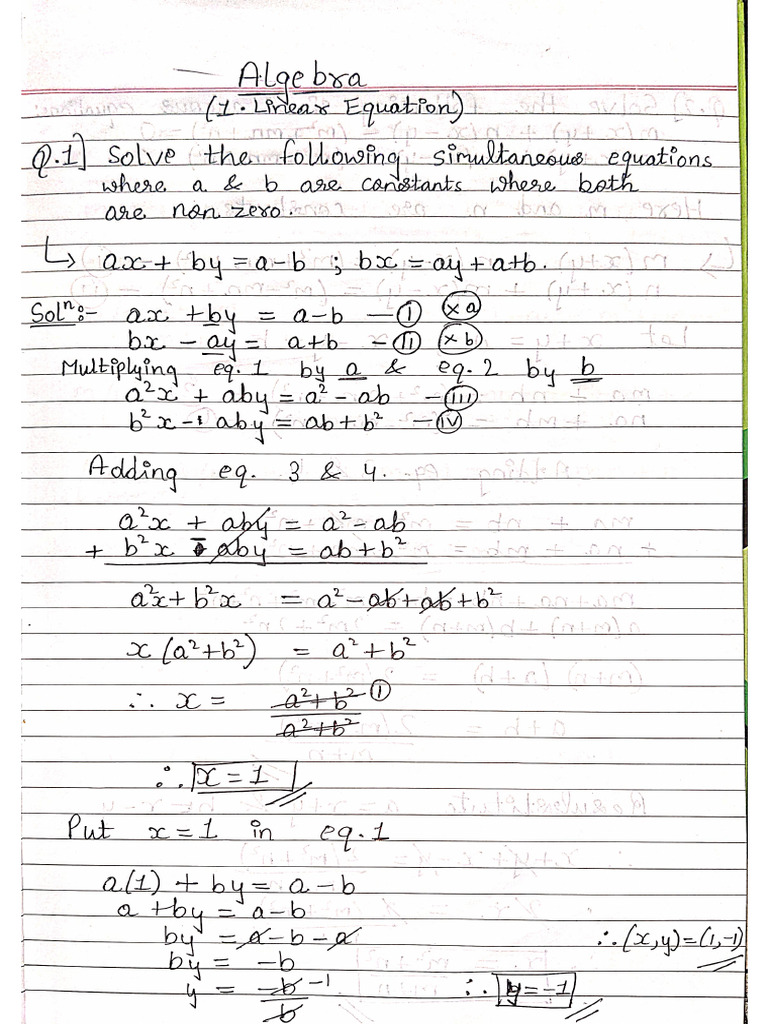 Algebra
(1. Linear Equation)
Q.1] Solve the following simultaneous equations
where a & b are constants where both
are non zero.
↳ ax + by = a-b ; bx = ay + a+b.
Solⁿ:- ax + by = a-b — (I) (×a)
bx - ay = a+b - (II) (×b)
Multiplying eq. 1 by a & eq. 2 by b
a²x + aby = a² - ab - (III)
b²x - aby = ab + b² - (IV)
Adding eq. 3 & 4.
a²x + aby = a² - ab
+ b²x - aby = ab + b²
a²x + b²x = a² - ab + ab + b²
x (a² + b²) = a² + b²
∴ x = a² + b² (1)
a² + b²
∴ x = 1
Put x = 1 in eq. 1
a(1) + by = a - b
a + by = a - b
by = a - b - a
∴ (x,y) = (1,-1)
by = -b
y = -b -1
b
∴ y = -1